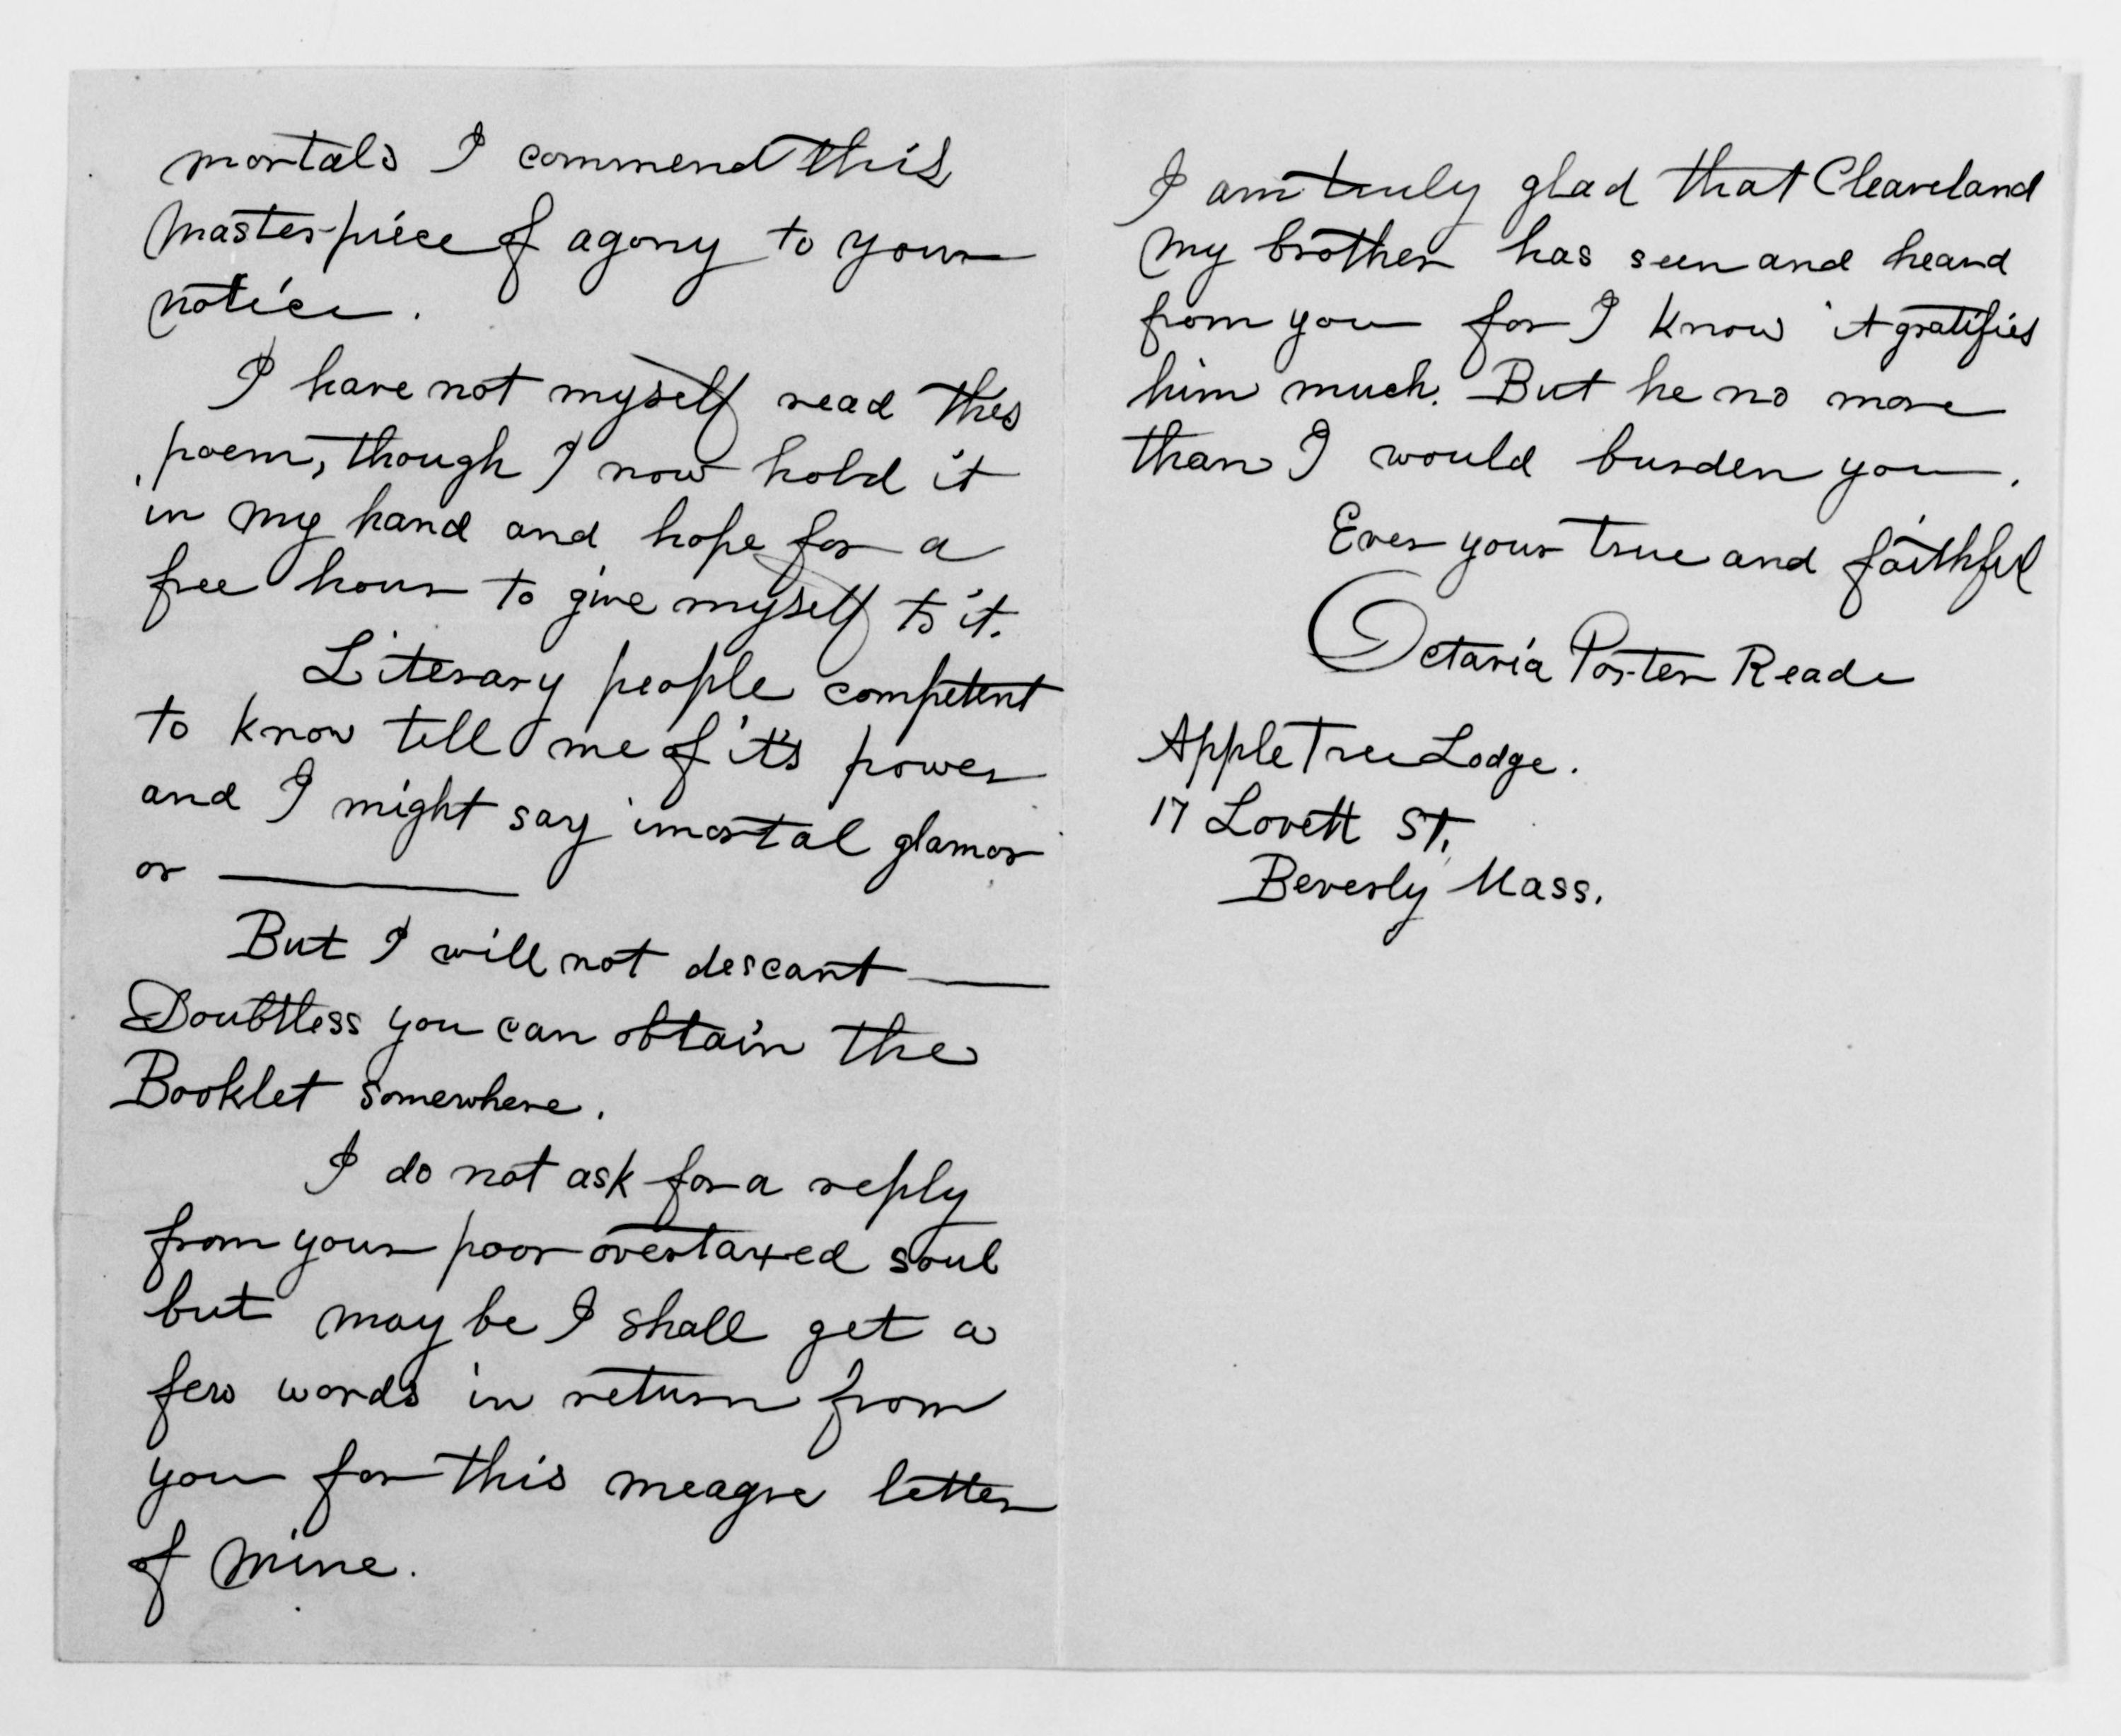 mortals I commend this
Master-piece of agony to your
notice.
I have not myself read this
poem, though I now hold it
in my hand and hope for a
free hour to give myself to it.
Literary people competent
to know tell me of it's power
and I might say imortal glamor
or ———
But I will not descant —
Doubtless you can obtain the
Booklet somewhere.
I do not ask for a reply
from your poor overtaxed soul
but may be I shall get a
few words in return from
you for this meagre letter
of mine.
I am truly glad that Cleaveland
my brother has seen and heard
from you for I know it gratifies
him much. But he no more
than I would burden you.
Ever your true and faithful
Octavia Porter Reade
Apple Tree Lodge.
17 Lovett St,
Beverly Mass.